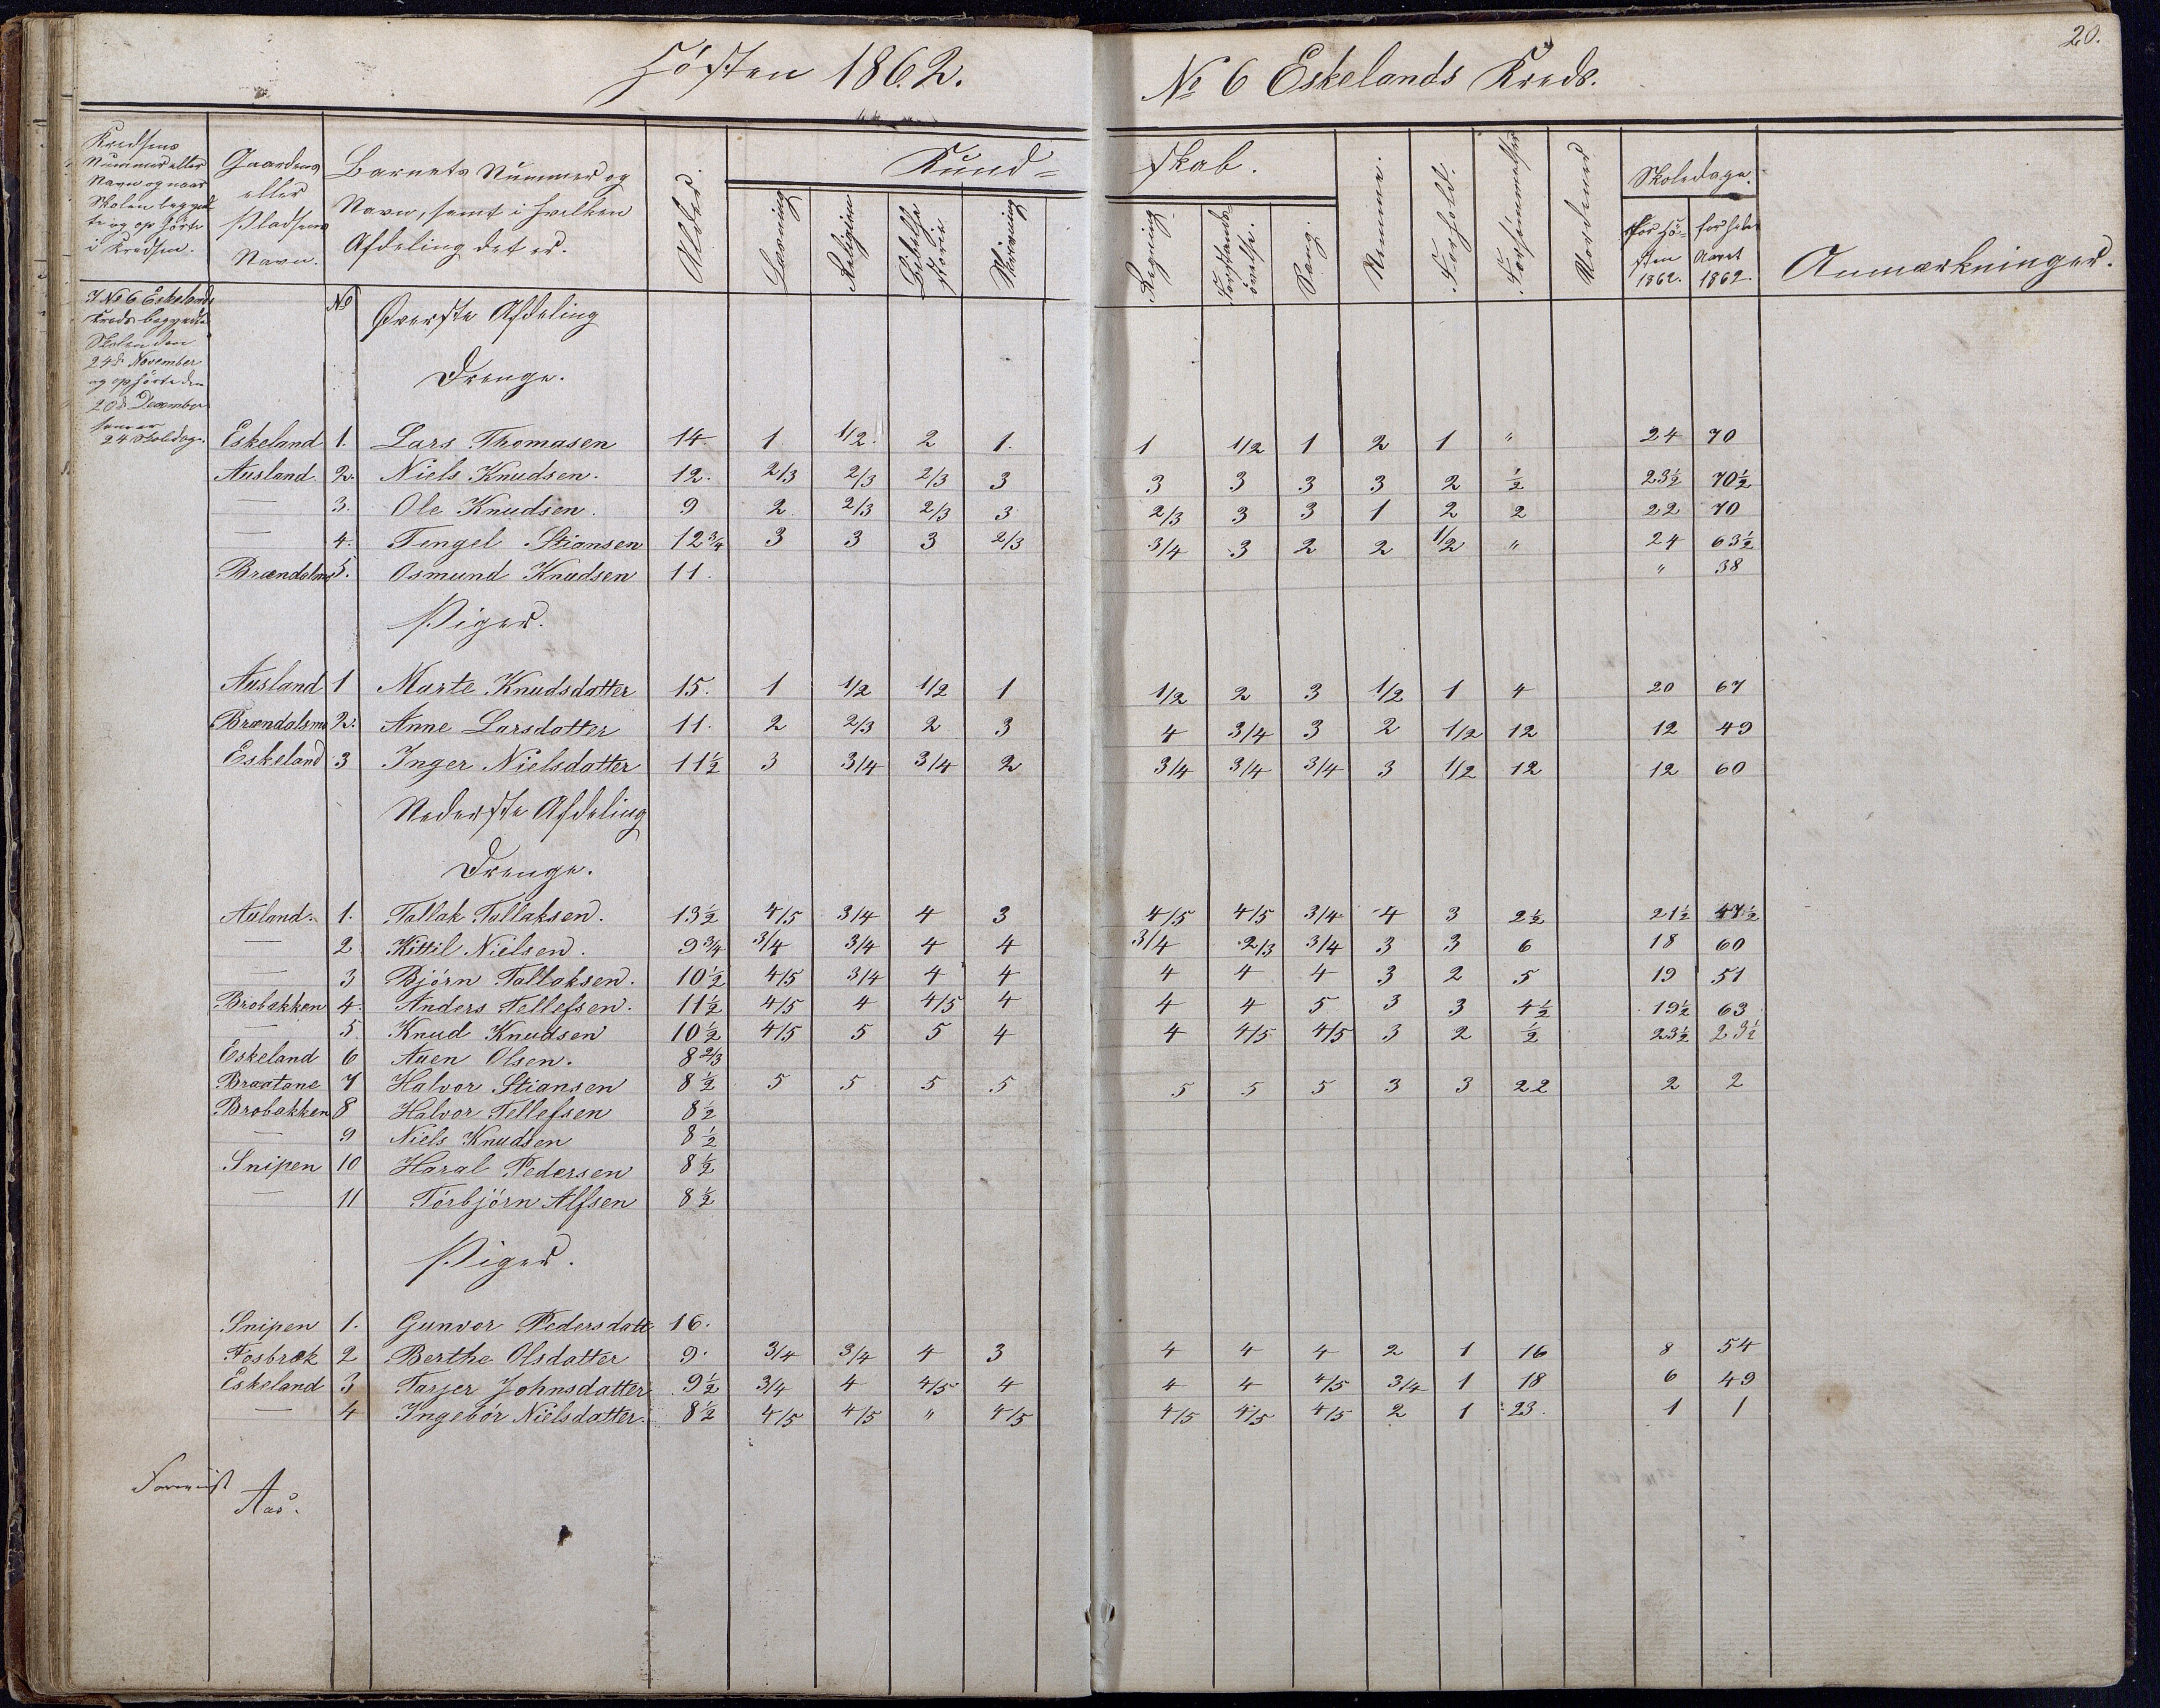 Hösten 1862.
No 6 Eskelands Kreds.
20.
Kredsens Nummer eller Navn og naar Skolen begyndte og ophörte i Kredsen.
Gaardens eller Pladsens Navn.
Barnets Nummer og Navn, samt i hvilken Afdeling det er.
Alder.
Kund= skab.
Læsning
Religion
Bibelhistorie
Skrivning
Regning
Forstandsövelse.
Sang.
Nemme.
Forhold.
Forsömmelser
Skoledage.
For Hösten 1862.
for hele Aaret 1862
Anmærkninger.
I No 6 Eskelands
Kreds begyndte
Skolen den
24de November
og ophörte den
20de December
som er
24 Skoledage.
No Överste Afdeling
Drenge.
Eskeland 1. Lars Thomasen 14 1 1/2 2 1. 1 1/2 1 2 1 " 24 70
Ausland. 2. Niels Knudsen. 12. 2/3 2/3 2/3 3 3 3 3 3 2 ½ 23½ 70½
— 3. Ole Knudsen. 9 2 2/3 2/3 3 2/3 3 3 1 2 2 22 70
— 4. Tengel Stiansen 12¾ 3 3 3 2/3 3/4 3 2 2 1/2 " 24 63½
Brændalsmo 5. Osmund Knudsen 11. " 38
Piger.
Ausland 1 Marte Knudsdatter 15. 1 1/2 1/2 1 1/2 2 3 1/2 1 4 20 67
Brændalsmo 2. Anne Larsdatter 11. 2 2/3 2 3 4 3/4 3 2 1/2 12 12 49
Eskeland 3 Inger Nielsdatter 11½ 3 3/4 3/4 2 3/4 3/4 3/4 3 1/2 12 12 60
Nederste Afdeling
Drenge.
Ausland. 1. Tallak Tallaksen. 13½ 4/5 3/4 4 3 4/5 4/5 3/4 4 3 2½ 21½ 47½
— 2 Kittil Nielsen. 9¾ 3/4 3/4 4 4 3/4 2/3 3/4 3 3 6 18 60
— 3 Björn Tallaksen. 10½ 4/5 3/4 4 4 4 4 4 3 2 5 19 51
Brobakken 4. Anders Tellefsen. 11½ 4/5 4 4/5 4 4 4 5 3 3 4½ 19½ 63
— 5. Knud Knudsen 10½ 4/5 5 5 4 4 4/5 4/5 3 2 ½ 23½ 23½
Eskeland 6 Auen Olsen. 8 2/3
Braatane 7 Halvor Stiansen 8½ 5 5 5 5 5 5 5 3 3 22 2 2
Brobakken 8 Halvor Tellefsen 8½
— 9 Niels Knudsen 8½
Snipen 10 Haral Pedersen 8½
— 11 Törbjörn Alfsen 8½
Piger.
Snipen 1. Gunvor Pedersdatt 16.
Fosbræk 2 Berthe Olsdatter 9. 3/4 3/4 4 3 4 4 4 2 1 16 8 54
Eskeland 3 Tarjer Johnsdatter 9½ 3/4 4 4/5 4 4 4 4/5 3/4 1 18 6 49
— 4 Ingebör Nielsdatter. 8½ 4/5 4/5 " 4/5 4/5 4/5 4/5 2 1 23. 1 1
Forevist
Aas.